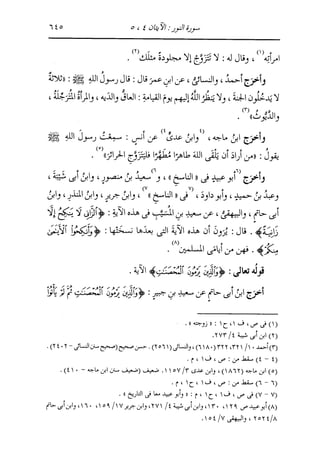 سورة النور: الآيتان ٤، ٥ ٦٤٥
امرأتِه(١)، وقال له: لا تَتزوَّجْ إلا مجلودةً مثلَك(٢).
وأخرَج أحمدُ، والنسائىُّ، عن ابنِ عمرَ قال: قال رسولُ اللهِ ﷺ: «ثلاثةٌ
لا يَدخُلون الجنةَ، ولا يَنظُرُ اللهُ إليهم يومَ القيامةِ: العاقُّ والدَيه، والمرأةُ المُتَرَجِّلةُ،
والدَّيُّوثُ»(٣).
وأخرَج ابنُ ماجه، (٤وابنُ عدىٍّ٤) عن أنسٍ: سمِعتُ رسولَ اللهِ ﷺ
يقولُ: «من أراد أن يَلْقَى اللهَ طاهرًا مُطَهَّرًا فليتزوَّجِ الحرائرَ»(٥).
وأخرَج (٦أبو عبيدٍ فى «الناسخِ»، و٦)سعيدُ بنُ منصورٍ، وابنُ أبى شيبةَ،
وعبدُ بنُ حميدٍ، وأبو داودَ، (٧فى «الناسخِ»٧)، وابنُ جريرٍ، وابنُ المنذرِ، وابنُ
أبى حاتمٍ، والبيهقىُّ، عن سعيدِ بنِ المسيَّبِ فى هذه الآيةِ: ﴿الزَّانِى لَا يَنكِحُ إِلَّا
زَانِيَةً﴾. قال: يُرَون أن هذه الآيةَ التى بعدَها نسَخَتْها: ﴿وَأَنكِحُوا الْأَيَامَىٰ
مِنكُمْ﴾. فهن من أيامَى المسلمين(٨).
قولُه تعالى: ﴿وَالَّذِينَ يَرْمُونَ الْمُحْصَنَاتِ﴾ الآية.
أخرَج ابنُ أبى حاتمٍ عن سعيدِ بنِ جبيرٍ: ﴿وَالَّذِينَ يَرْمُونَ الْمُحْصَنَاتِ ثُمَّ لَمْ يَأْتُوا
(١) فى ص، ف ١، ح ١: «زوجته».
(٢) ابن أبى شيبة ٤/ ٢٧٣.
(٣) أحمد ١٠/ ٣٢١، ٣٢٢ (٦١٨٠)، والنسائى (٢٥٦١). حسن صحيح (صحيح سنن النسائى - ٢٤٠٢).
(٤ - ٤) سقط من: ص، ف ١، م.
(٥) ابن ماجه (١٨٦٢)، وابن عدى ٣/ ١١٥٧. ضعيف (ضعيف سنن ابن ماجه - ٤١٠).
(٦ - ٦) سقط من: ص، ف ١، ح ١، م.
(٧ - ٧) فى ص، ف ١، ح ١، م: «وأبو عبيد معا فى التاريخ».
(٨) أبو عبيد ص ١٢٩، ١٣٠، وابن أبى شيبة ٤/ ٢٧١، وابن جرير ١٧/ ١٥٩، ١٦٠، وابن أبى حاتم
٨/ ٢٥٢٤، والبيهقى ٧/ ١٥٤.